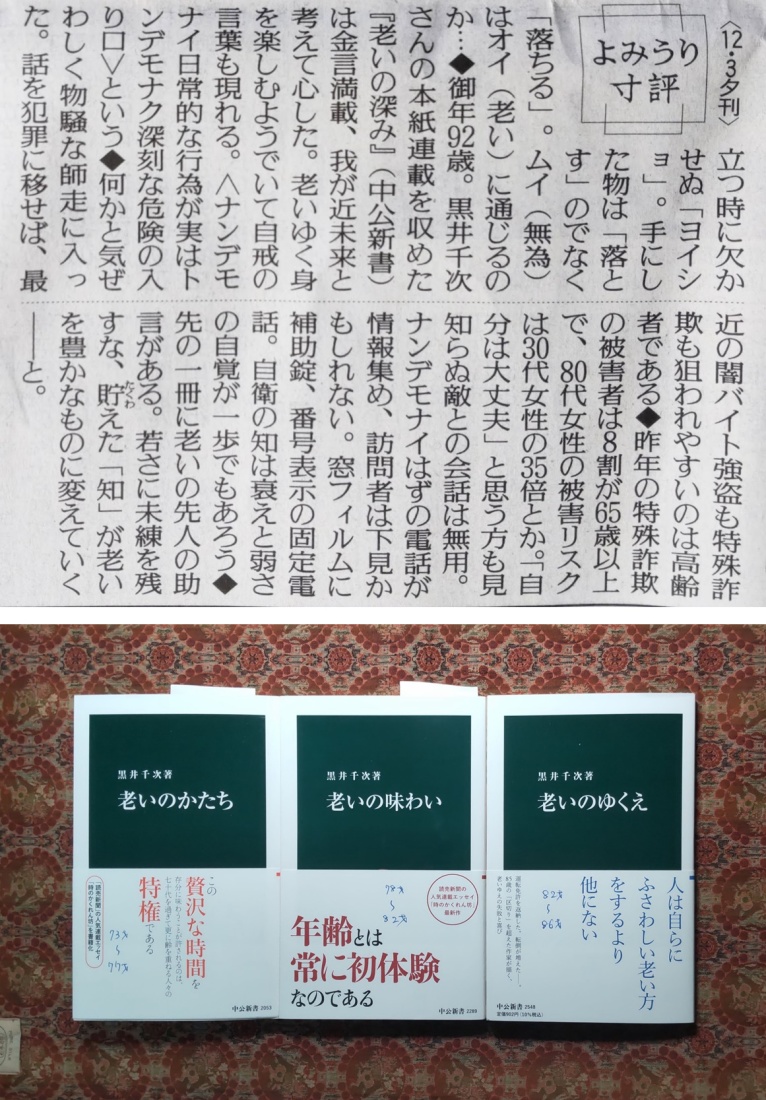 〈12・3夕刊〉
よみうり
寸評
立つ時に欠か
せぬ「ヨイシ
ョ」。手にし
た物は「落と
す」のでなく
「落ちる」。ムイ（無為）
はオイ（老い）に通じるの
か…◆御年92歳。黒井千次
さんの本紙連載を収めた
『老いの深み』（中公新書）
は金言満載、我が近未来と
考えて心した。老いゆく身
を楽しむようでいて自戒の
言葉も現れる。＜ナンデモ
ナイ日常的な行為が実はト
ンデモナク深刻な危険の入
り口＞という◆何かと気ぜ
わしく物騒な師走に入っ
た。話を犯罪に移せば、最
近の闇バイト強盗も特殊詐
欺も狙われやすいのは高齢
者である◆昨年の特殊詐欺
の被害者は8割が65歳以上
で、80代女性の被害リスク
は30代女性の35倍とか。「自
分は大丈夫」と思う方も見
知らぬ敵との会話は無用。
ナンデモナイはずの電話が
情報集め、訪問者は下見か
もしれない。窓フィルムに
補助錠、番号表示の固定電
話。自衛の知は衰えと弱さ
の自覚が一歩でもあろう◆
先の一冊に老いの先人の助
言がある。若さに未練を残
すな、貯えた「知」が老い
を豊かなものに変えていく
――と。
たくわ
黒井千次著
老いのかたち
この
贅沢な時間を
存分に味わうことが許されるのは、
七十代を過ぎて更に齢を重ねる人その
特権である
読売新聞の人気連載エッセイ
「時のかくれん坊」を書籍化
73才
〜
77才
中公新書 2053
黒井千次著
老いの味わい
78才
〜
82才
読売新聞の
人気連載エッセイ
「時のかくれん坊」
最新作
年齢とは
常に初体験
なのである
中公新書 2289
黒井千次著
老いのゆくえ
人は自らに
ふさわしい老い方
をするより
他にない
82才
〜
86才
中公新書 2548